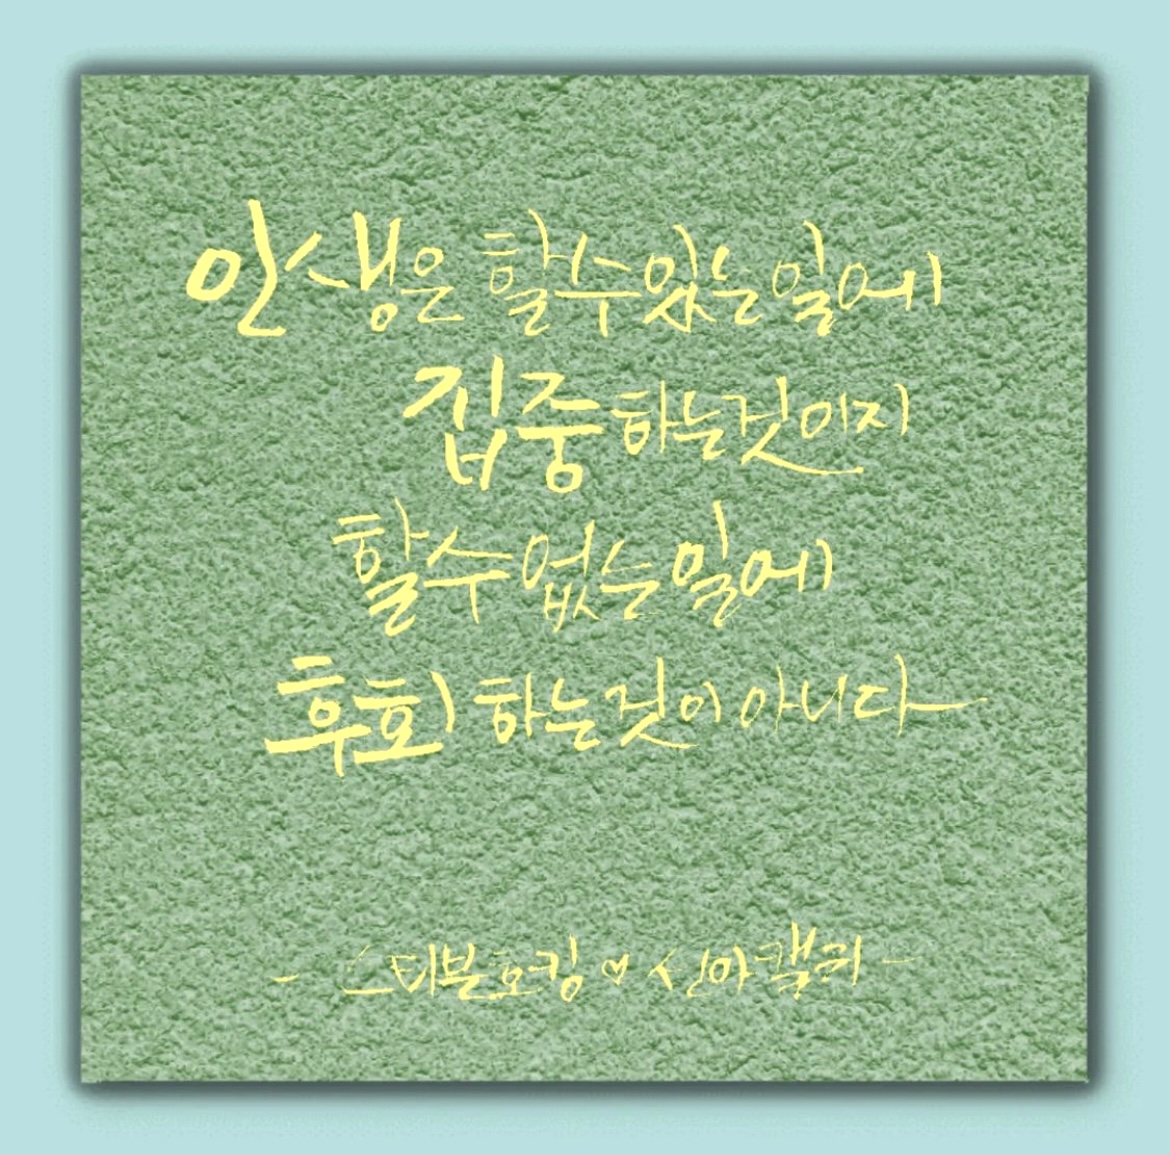 인생은 할수있는일에
집중하는것이지
할수없는일에
후회하는것이 아니다
- 스티븐호킹♡신아캘리 -